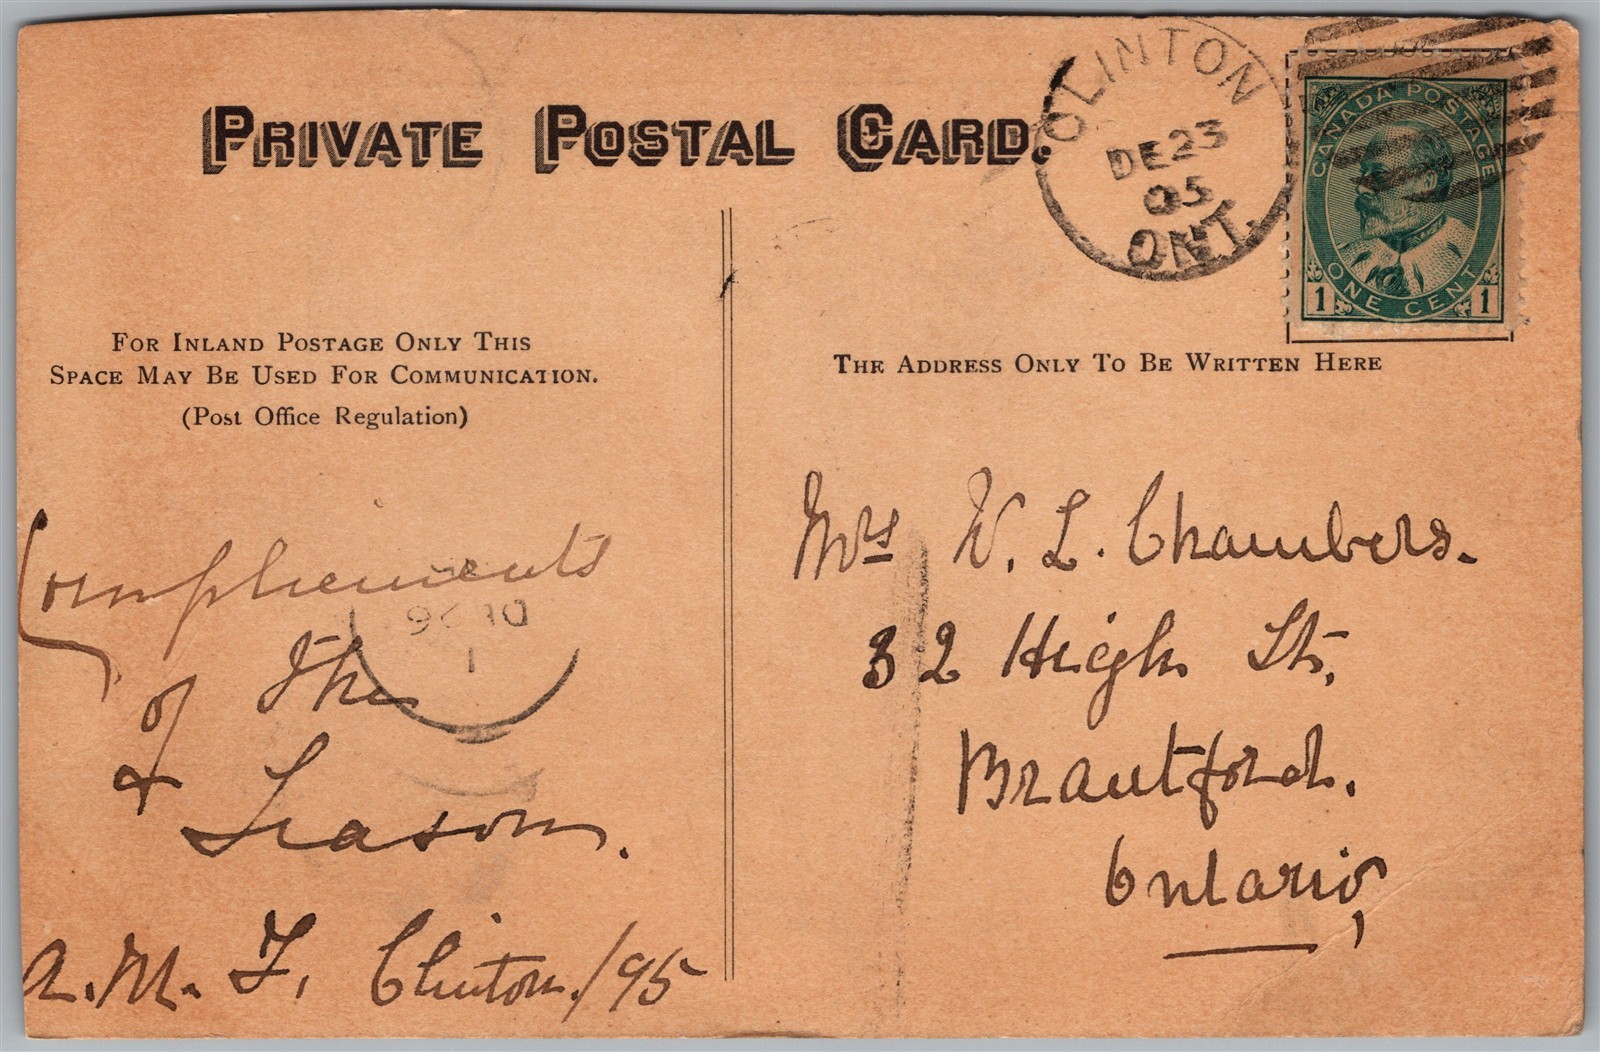 PRIVATE POSTAL CARD.
CLINTON
DE 23
05
ONT.
CANADA POSTAGE
ONE CENT
1 1
FOR INLAND POSTAGE ONLY THIS
SPACE MAY BE USED FOR COMMUNICATION.
(Post Office Regulation)
THE ADDRESS ONLY TO BE WRITTEN HERE
Compliments
of the
Season.
A. M. F. Clinton./95
Mrs W. L. Chambers.
32 High St.
Brantford.
Ontario,